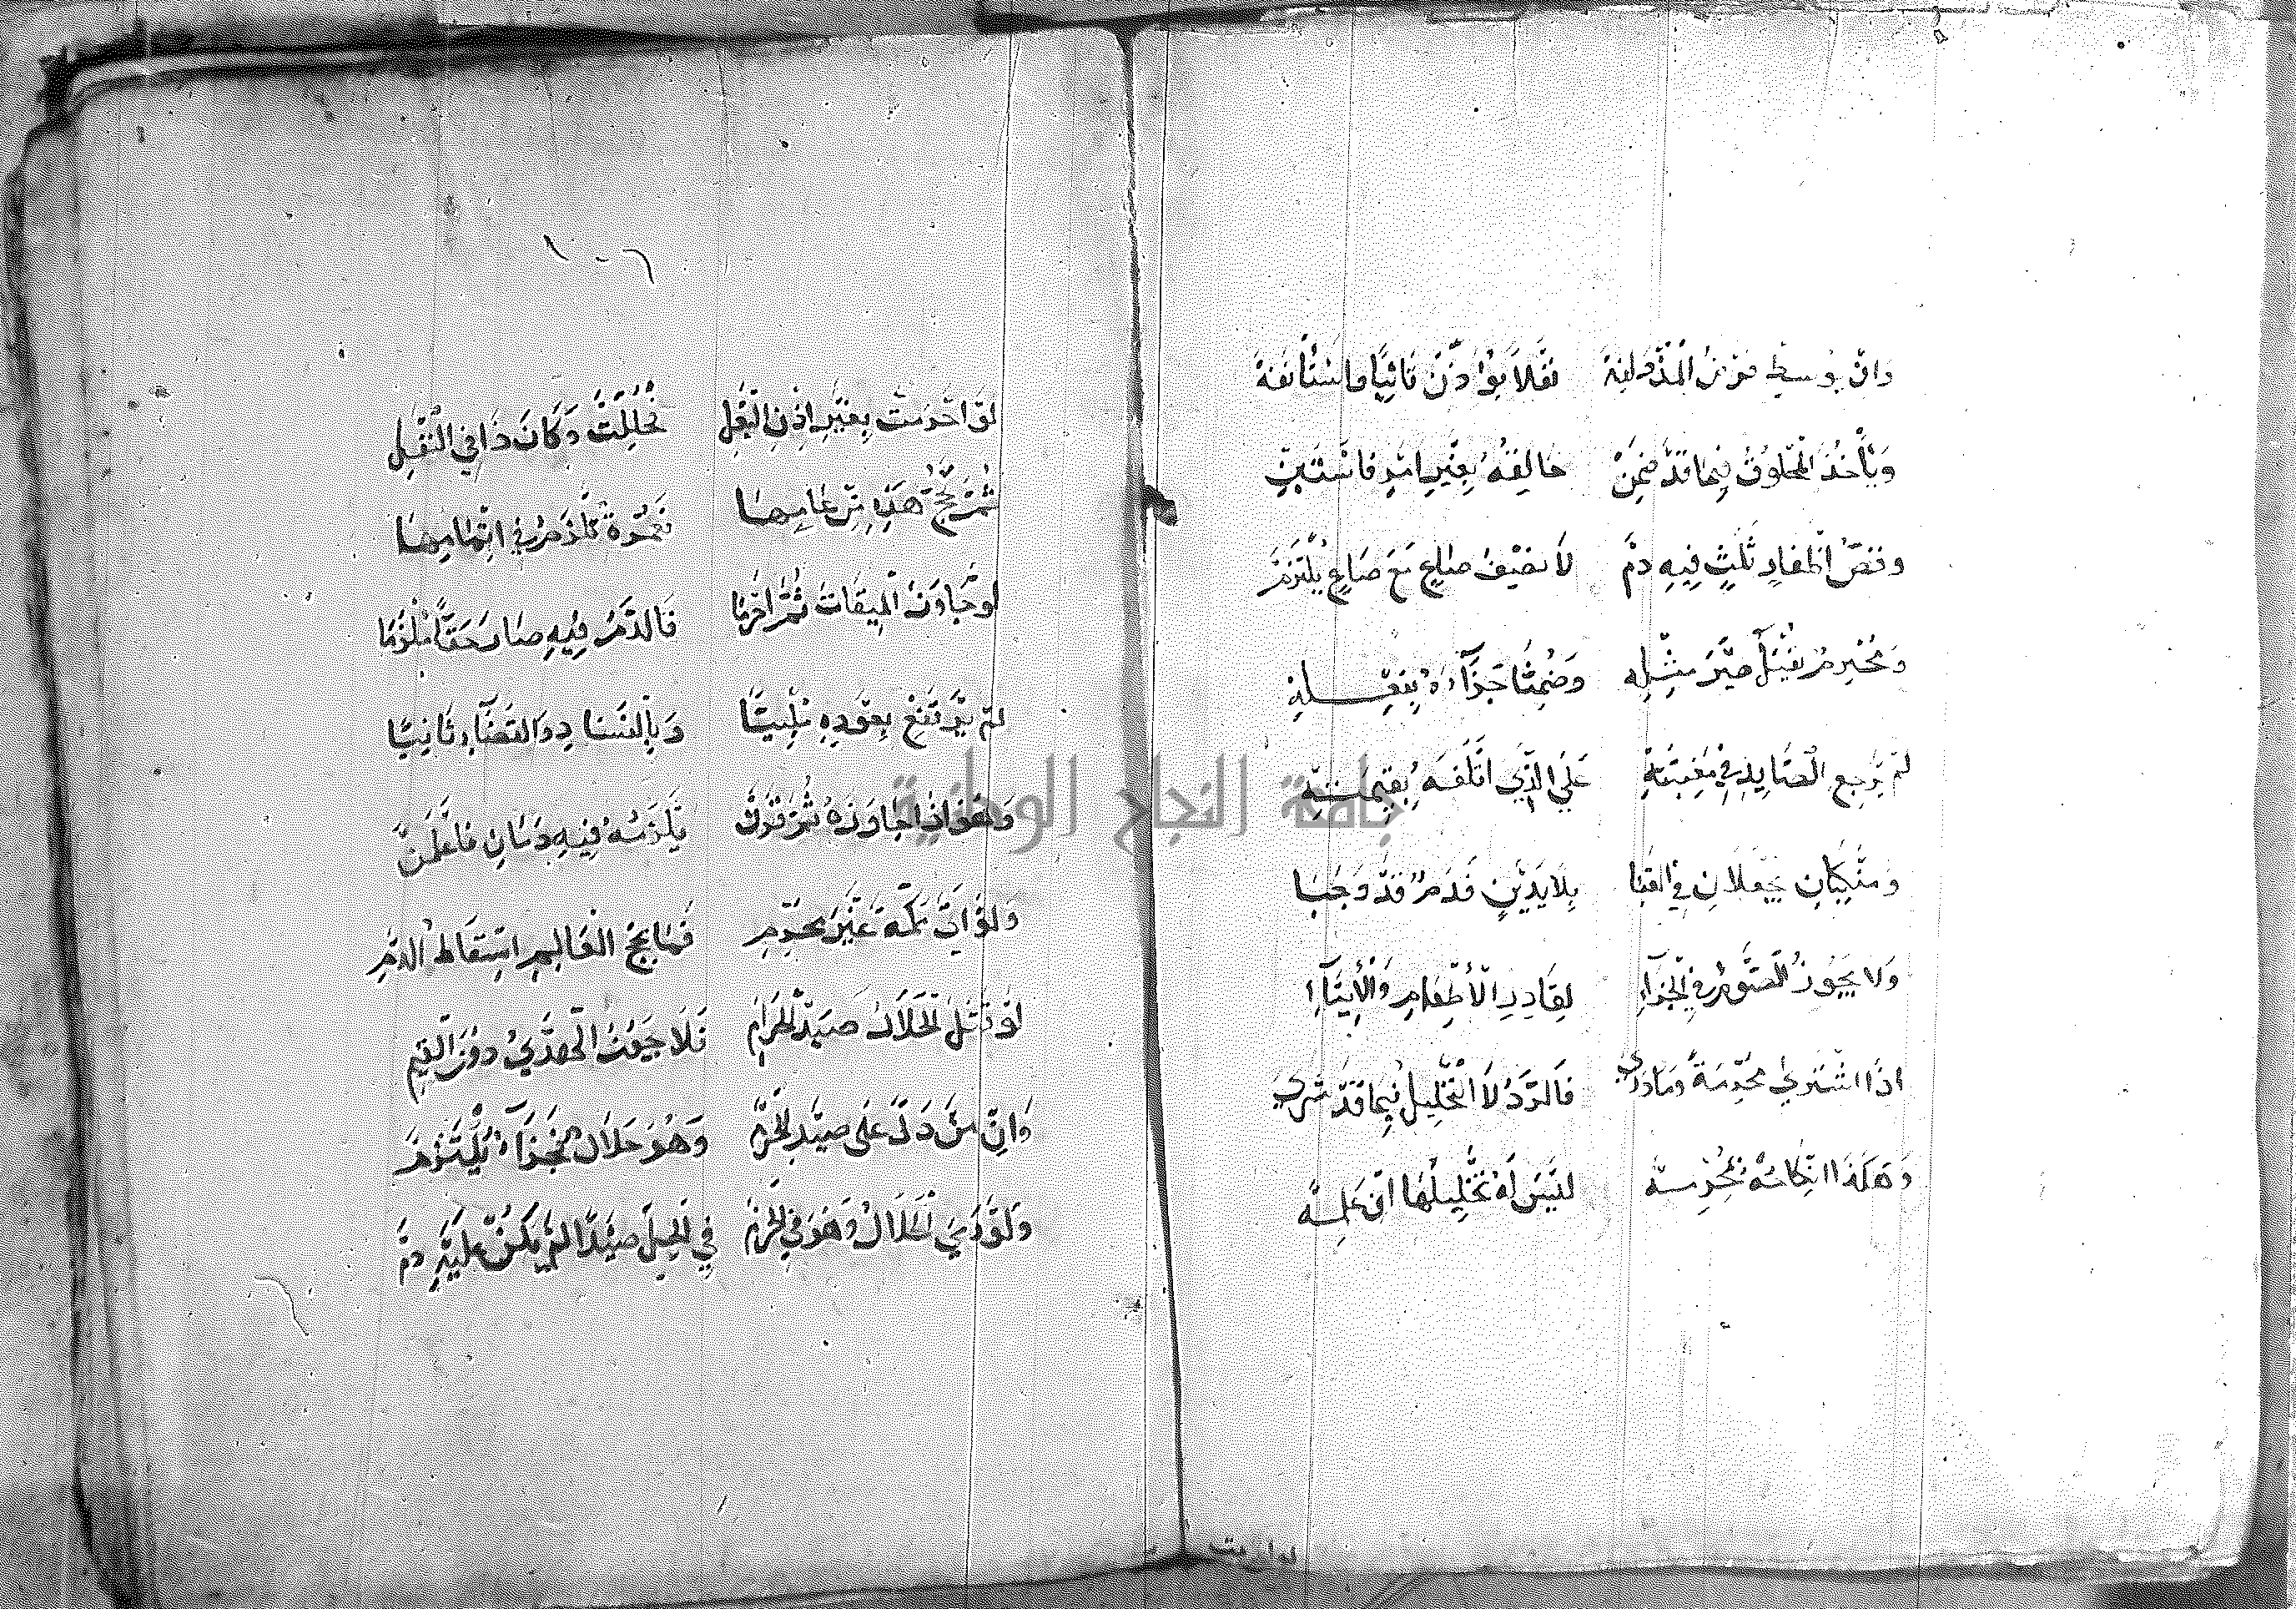 وان يوسط فرض المزدلفة نفلا بوا ذن ثانيا واستأنفه
ويأخذ المحلوق فيما قد ضمن حالقه بغير امر فاستبن
وقص اظفار ثلث فيه دم لا نصف صاع مع صاع يلتزم
ومحرم يقتل صيد مثله وضمنا جزاءه بفعله
لم يرجع الصايد في مغبته على الذي اتلفه بقيمته
ومنكبان يجعلان في القبا بلا يدين فدم قد وجبا
ولا يجوز الصوم في الجزاء لقادر الاطعام والايتاء
اذا اشترى محرمة وما درى فالرد لا التحليل فيما قد شرى
وهكذا انكاحه محرمه ليس له تحليلها ان علمه
لو احرمت بغير اذن البعل تحللت وكان ذا في النفل
ثم تحج هذه من عامها فعمرة تلزم في اتمامها
لو جاوز الميقات ثم احرما فالدم فيه صار حقا ملزما
لم يرتفع بعوده ملبيا وبالفساد والقضاء ثانيا
وهو اذا جاوزه ثم قرن يلزمه فيه دمان فاعلمن
ولو اتى مكة غير محرم فما بحج العالم اسقاط الدم
لو قتل الحلال صيد الحرم فلا يجوز الهدي دون القيم
وان من دل على صيد الحرم وهو حلال بجزاء يلتزم
ولو رمى الحلال وهو في الحرم في الحل صيدا لم يكن عليه دم
لو احرمت
جامعة النجاح الوطنية